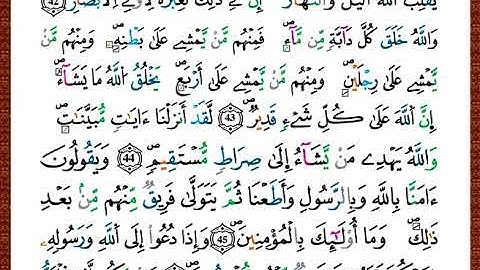 يُقَلِّبُ اُ۬للَّهُ اُ۬ليْلَ وَالنَّهَارَ إِنَّ فِے ذَٰلِكَ لَعِبْرَةٗ لِّأُوْلِے اِ۬لْأَبْصَٰرِ 42
وَاللَّهُ خَلَقَ كُلَّ دَآبَّةٖ مِّن مَّآءٖ فَمِنْهُم مَّنْ يَّمْشِے عَلَىٰ بَطْنِهِۦ وَمِنْهُم مَّنْ
يَّمْشِے عَلَىٰ رِجْلَيْنِ وَمِنْهُم مَّنْ يَّمْشِے عَلَىٰٓ أَرْبَعٖ يَخْلُقُ اُ۬للَّهُ مَا يَشَآءُ
إِنَّ اَ۬للَّهَ عَلَىٰ كُلِّ شَےْءٖ قَدِيرٞ 43 لَّقَدَ اَنزَلْنَآ ءَايَٰتٖ مُّبَيَّنَٰتٖ
وَاللَّهُ يَهْدِے مَنْ يَّشَآءُ إِلَىٰ صِرَٰطٖ مُّسْتَقِيمٖ 44 وَيَقُولُونَ
ءَامَنَّا بِاللَّهِ وَبِالرَّسُولِ وَأَطَعْنَا ثُمَّ يَتَوَلَّىٰ فَرِيقٞ مِّنْهُم مِّنۢ بَعْدِ
ذَٰلِكَ وَمَآ أُوْلَٰٓئِكَ بِالْمُؤْمِنِينَ 45 وَإِذَا دُعُوٓاْ إِلَى اَ۬للَّهِ وَرَسُولِهِۦ